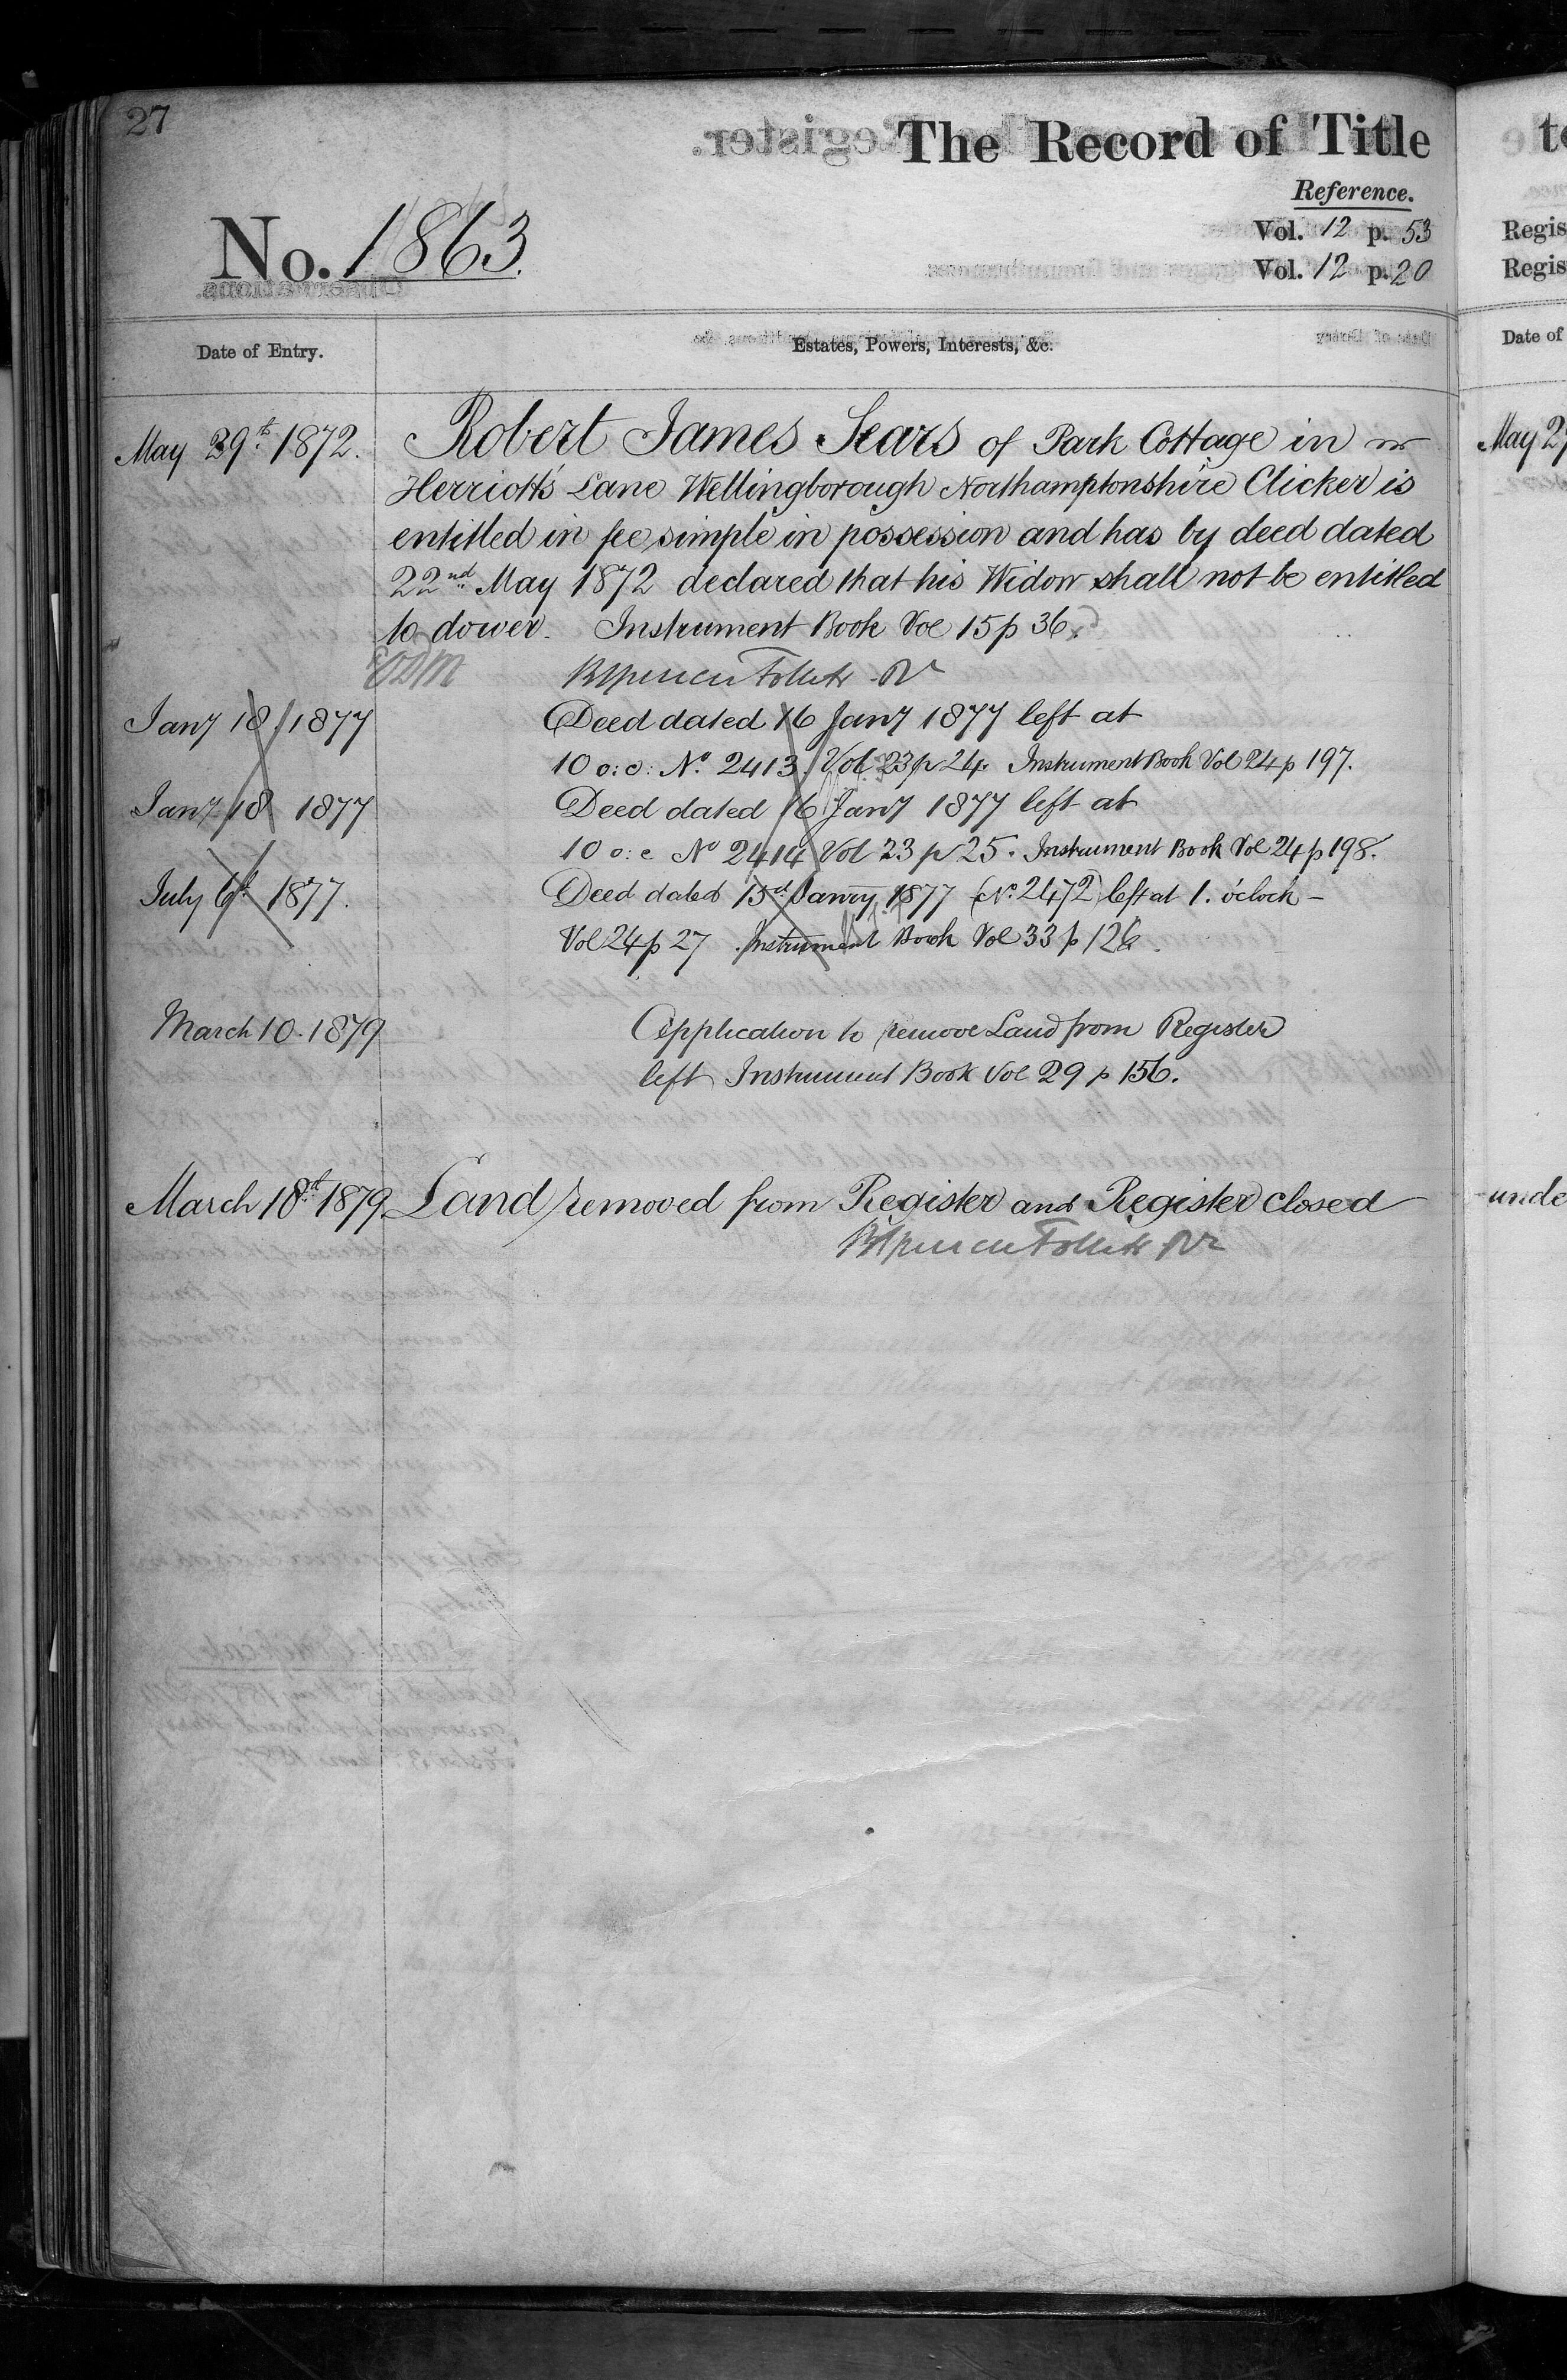 27
The Record of Title
Reference.
No. 1863.
Vol. 12 p. 53
Vol. 12 p. 20
Date of Entry.
Estates, Powers, Interests, &c.
May 29th 1872.
Robert James Sears of Park Cottage in
Herriotts Lane Wellingborough Northamptonshire Clicker is
entitled in fee simple in possession and has by deed dated
22nd May 1872 declared that his Widow shall not be entitled
to dower. Instrument Book Vol 15 p 36.
Jany 18 1877
Deed dated 16 Jany 1877 left at
10 o:c: No. 2413. Vol. 23 p 24. Instrument Book Vol 24 p 197.
Jany 18 1877
Deed dated 16 Jany 1877 left at
10 o:c No 2414 Vol 23 p 25. Instrument Book Vol 24 p 198.
July 6th 1877.
Deed dated 15th Janry 1877 (No. 2472) left at 1. o'clock –
Vol 24 p 27 Instrument Book Vol 33 p 126.
March 10. 1879
Application to remove Land from Register
left Instrument Book Vol 29 p 156.
March 18th 1879
Land removed from Register and Register closed
to
Regis
Regis
Date of
May 2
unde